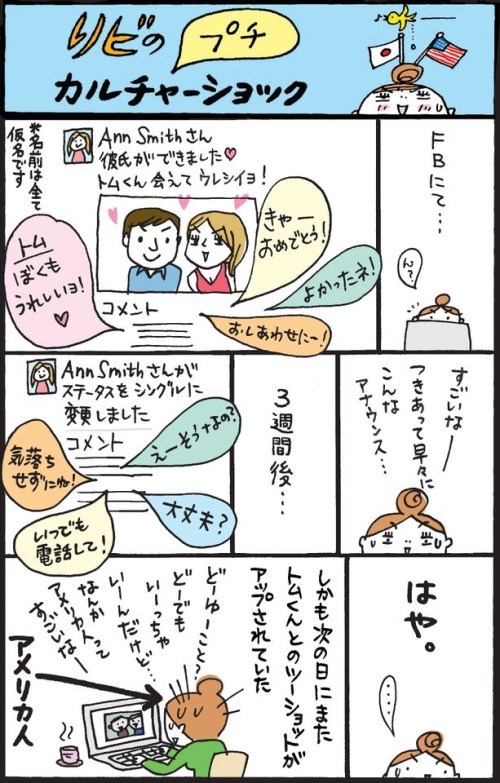 リビの
プチ
カルチャーショック
FBにて…
ん?
*名前は全て
仮名です
Ann Smithさん
彼氏ができました♥
トムくん会えてウレシイヨ!
きゃー
おめでとう!
よかったネ!
おしあわせにー!
トム
ぼくも
うれしいョ!
♥
コメント
すごいなー
つきあって早々に
こんな
アナウンス…
3週間後…
Ann Smithさんが
ステータスをシングルに
変更しました
コメント
えーそうなの?
気落ち
せずにね!
大丈夫?
いつでも
電話して!
はや。
……
しかも次の日にまた
トムくんとのツーショットが
アップされていた
どーゆーこと?
どーでも
いーっちゃ
いーんだけど…
なんか
アメリカ人って
すごいなー
アメリカ人